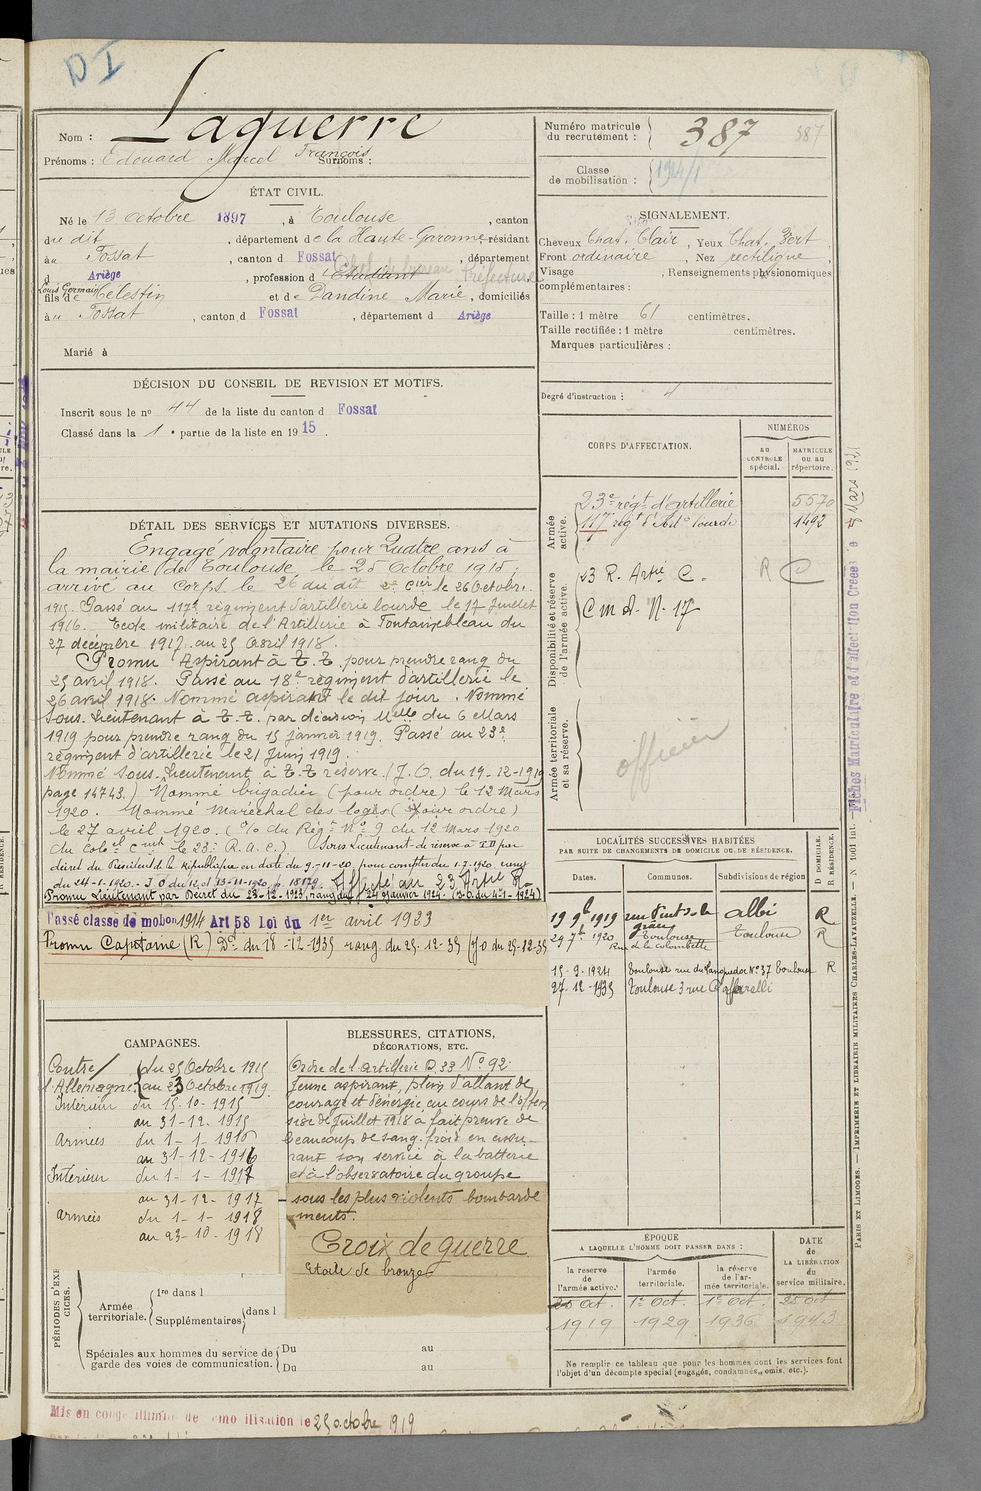 DI
Nom : Laguerre
Prénoms : Edouard Marcel François
Surnoms :
Numéro matricule du recrutement : 387
387
Classe de mobilisation : 1914/1
ÉTAT CIVIL.
Né le 13 Octobre 1897, à Toulouse, canton
du dit, département de la Haute-Garonne, résidant
à u Fossat, canton d Fossat, département
d Ariège, profession d Etudiant Préfecture
Louis Germain
fils de Célestin et de Dandine Marie, domiciliés
à u Fossat, canton d Fossat, département d Ariège
Marié à
SIGNALEMENT.
Cheveux Chat. Clair, Yeux Chat. Vert,
Front ordinaire, Nez rectiligne,
Visage , Renseignements physionomiques
complémentaires :
Taille : 1 mètre 61 centimètres.
Taille rectifiée : 1 mètre centimètres.
Marques particulières :
Degré d'instruction :
DÉCISION DU CONSEIL DE REVISION ET MOTIFS.
Inscrit sous le no 44 de la liste du canton d Fossat
Classé dans la 1e partie de la liste en 1915.
DÉTAIL DES SERVICES ET MUTATIONS DIVERSES.
Engagé volontaire pour Quatre ans à
la mairie de Toulouse le 25 Octobre 1915,
arrivé au Corps le 26 du dit 2e Cnr le 26 Octobre
1915. Passé au 117e régiment d'artillerie lourde le 17 Juillet
1916. Ecole militaire de l'Artillerie à Fontainebleau du
27 décembre 1917 au 25 Avril 1918.
Promu Aspirant à T.T. pour prendre rang du
25 avril 1918. Passé au 18e régiment d'artillerie le
26 avril 1918. Nommé aspirant le dit jour. Nommé
Sous-Lieutenant à T.T. par décision Melle du 6 Mars
1919 pour prendre rang du 15 janvier 1919. Passé au 23e
régiment d'artillerie le 21 Juin 1919.
Nommé Sous-Lieutenant à T.T réserve. (J.O. du 19-12-1919
page 14743.) Nommé brigadier (pour ordre) le 12 Mars
1920. Nommé Maréchal des logis (pour ordre)
le 27 avril 1920. (O/o du Régt No 9 du 12 Mars 1920
du Colel Cmdt le 23e R.A.C.) Sous Lieutenant de réserve à T.D par
décret du Président de la République en date du 9-11-20, pour compter du 1.7.1920 rang
du 24-1-1920. J.O du 12 et 13-11-1920 p. 18179. Affecté au 23 Artie R.
Promu Lieutenant par Décret du 23-12-1923, rang du 24 Janvier 1924. (J.O. du 4-1-1924)
Passé classe de mobon 1914 Art 58 Loi du 1er avril 1923
Promu Capitaine (R) Dt du 18-12-1935 rang du 25-12-35 (JO du 25-12-35
CORPS D'AFFECTATION.
NUMÉROS
AU CONTROLE spécial.
MATRICULE OU AU répertoire.
Armée active.
23e régt d'artillerie 5570
117 régt d'Artie lourde 1492
Disponibilité et réserve de l'armée active.
23 R. Artie C. R C
C m A. N. 17
Armée territoriale et sa réserve.
officier
Fiches Matriculaire et d'affectation Créées le 5 Mars 1921
LOCALITÉS SUCCESSIVES HABITÉES
PAR SUITE DE CHANGEMENTS DE DOMICILE OU DE RÉSIDENCE.
Dates. Communes. Subdivisions de région D DOMICILE. R RÉSIDENCE.
19 9b 1919 rue Puits de la grau Albi R
29 7b 1920 Toulouse Rue de la Colombette Toulouse R
15-9-1924 Toulouse rue du Languedoc No 37 Toulouse R
27-12-1935 Toulouse 3 rue Caffarelli
CAMPAGNES.
Contre l'Allemagne du 25 Octobre 1915
au 23 Octobre 1919.
Intérieur du 15-10-1915
au 31-12-1915
Armées du 1-1-1916
au 31-12-1916
Intérieur du 1-1-1917
au 31-12-1917
Armées du 1-1-1918
au 23-10-1918
BLESSURES, CITATIONS,
DÉCORATIONS, ETC.
Ordre de l'artillerie D.33 No 92:
Jeune aspirant, plein d'allant de
courage et d'énergie au cours de l'offen
sive de Juillet 1918 a fait preuve de
beaucoup de sang-froid en assu-
rant son service à la batterie
et à l'observatoire du groupe
sous les plus violents bombarde
ments.
Croix de guerre
Etoile de bronze
PÉRIODES D'EXERCICES.
Armée territoriale. 1re dans l
Supplémentaires dans l
Spéciales aux hommes du service de garde des voies de communication. Du au
Du au
ÉPOQUE
A LAQUELLE L'HOMME DOIT PASSER DANS :
la réserve de l'armée active.
l'armée territoriale.
la réserve de l'armée territoriale.
DATE de LA LIBÉRATION du service militaire.
25 Oct. 1er Oct. 1er Oct. 25 Oct
1919 1929 1936 1943
Ne remplir ce tableau que pour les hommes dont les services font
l'objet d'un décompte spécial (engagés, condamnés, omis, etc.).
PARIS ET LIMOGES. — IMPRIMERIE ET LIBRAIRIE MILITAIRES CHARLES-LAVAUZELLE. — N 1001 int.
Mis en congé illimité de démobilisation le 25 octobre 1919